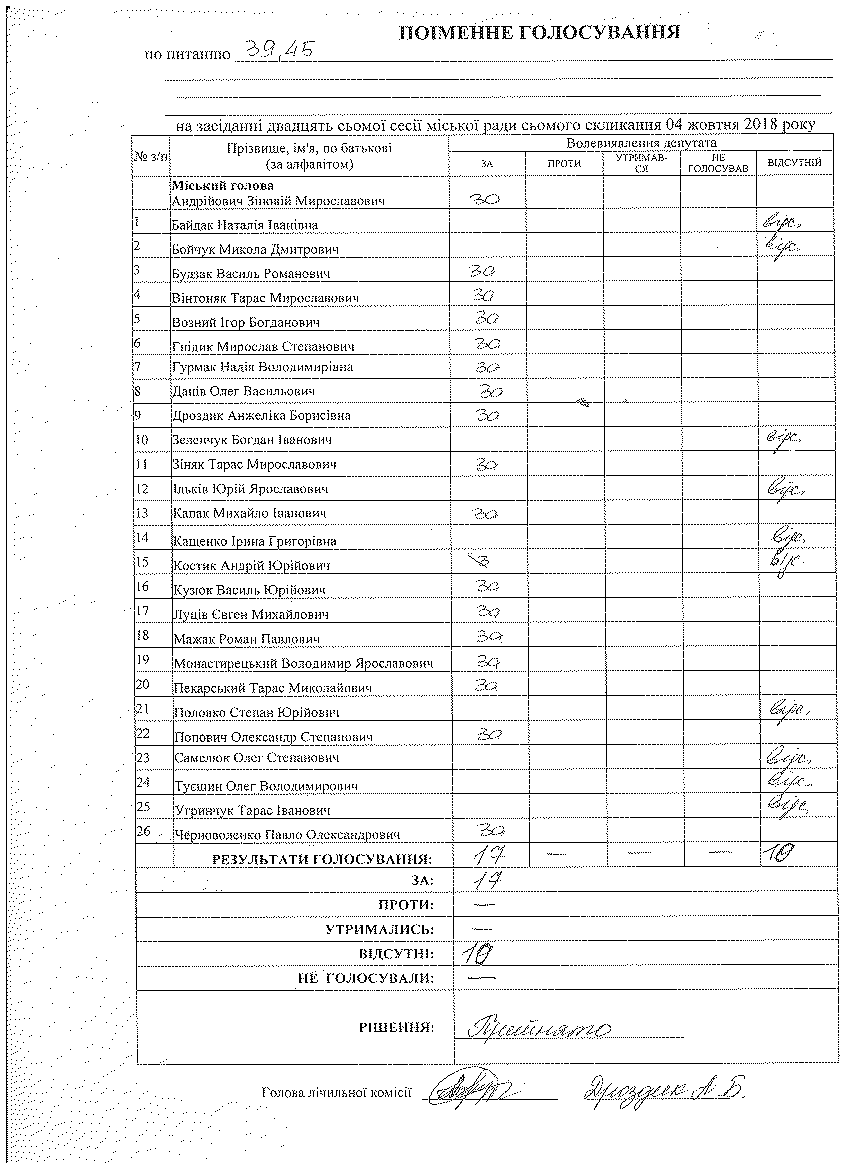 ПОІМЕННЕ ГОЛОСУВАННЯ
по питанню 39,45
на засіданні двадцять сьомої сесії міської ради сьомого скликання 04 жовтня 2018 року
№ з/п Прізвище, ім'я, по батькові (за алфавітом) Волевиявлення депутата
ЗА ПРОТИ УТРИМАВ-СЯ НЕ ГОЛОСУВАВ ВІДСУТНІЙ
Міський голова
Андрійович Зіновій Мирославович за
1 Байдак Наталія Іванівна відс.
2 Бойчук Микола Дмитрович відс.
3 Будзак Василь Романович за
4 Вінтоняк Тарас Мирославович за
5 Возний Ігор Богданович за
6 Гнідик Мирослав Степанович за
7 Гурмак Надія Володимирівна за
8 Данів Олег Васильович за
9 Дроздик Анжеліка Борисівна за
10 Зеленчук Богдан Іванович відс.
11 Зіняк Тарас Мирославович за
12 Ільків Юрій Ярославович відс.
13 Капак Михайло Іванович за
14 Кащенко Ірина Григорівна відс.
15 Костик Андрій Юрійович відс.
16 Кузюк Василь Юрійович за
17 Луців Євген Михайлович за
18 Мажак Роман Павлович за
19 Монастирецький Володимир Ярославович за
20 Пекарський Тарас Миколайович за
21 Половко Степан Юрійович відс.
22 Попович Олександр Степанович за
23 Самелюк Олег Степанович відс.
24 Туєшин Олег Володимирович відс.
25 Угринчук Тарас Іванович відс.
26 Черноволенко Павло Олександрович за
РЕЗУЛЬТАТИ ГОЛОСУВАННЯ: 17 — — — 10
ЗА: 17
ПРОТИ: —
УТРИМАЛИСЬ: —
ВІДСУТНІ: 10
НЕ ГОЛОСУВАЛИ: —
РІШЕННЯ: Прийнято
Голова лічильної комісії Дроздик А. Б.